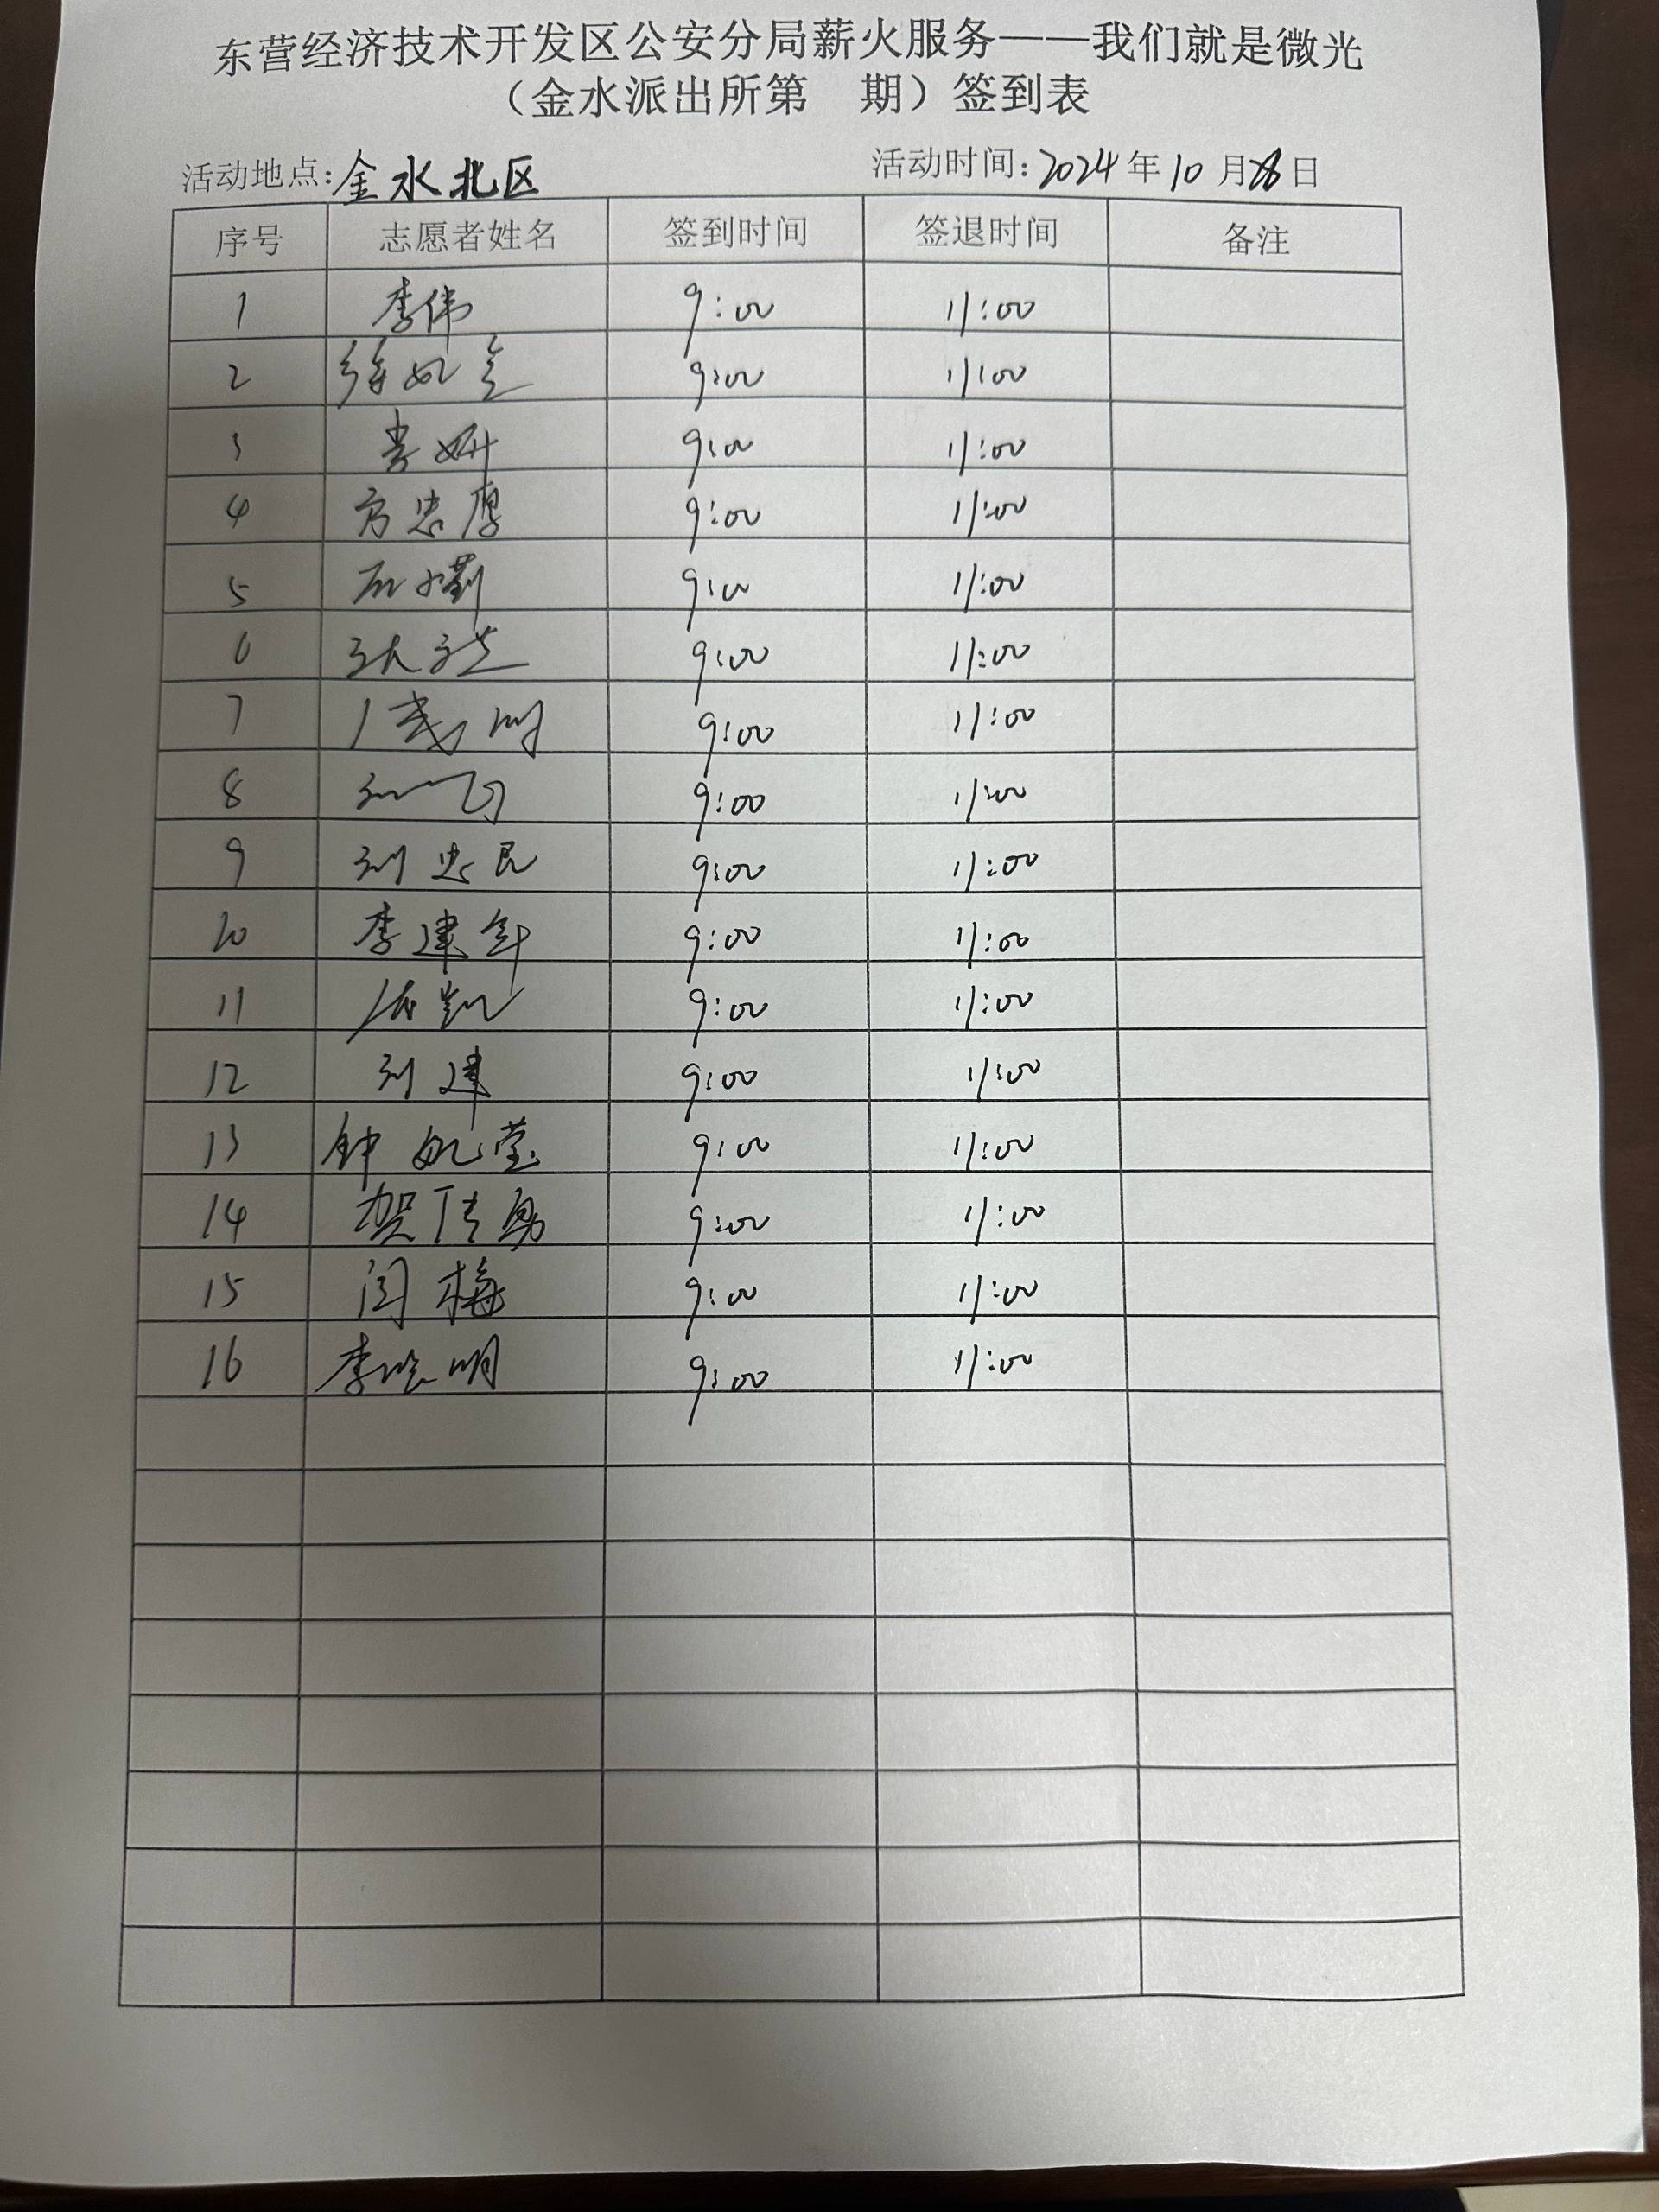 东营经济技术开发区公安分局薪火服务——我们就是微光
（金水派出所第 期）签到表
活动地点：金水北区 活动时间：2024年10月 日
序号 志愿者姓名 签到时间 签退时间 备注
1 李伟 9:00 11:00
2 徐如 9:00 11:00
3 李妍 9:00 11:00
4 方忠厚 9:00 11:00
5 9:00 11:00
6 张 9:00 11:00
7 明 9:00 11:00
8 刘 9:00 11:00
9 刘忠民 9:00 11:00
10 李建军 9:00 11:00
11 凯 9:00 11:00
12 刘建 9:00 11:00
13 钟妮莹 9:00 11:00
14 贺传勇 9:00 11:00
15 闫梅 9:00 11:00
16 李晓明 9:00 11:00